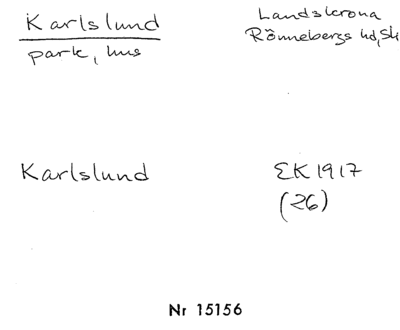 Karlslund
park, hus
Landskrona
Rönnebergs hd, Sk
Karlslund
EK 1917
(26)
Nr 15156